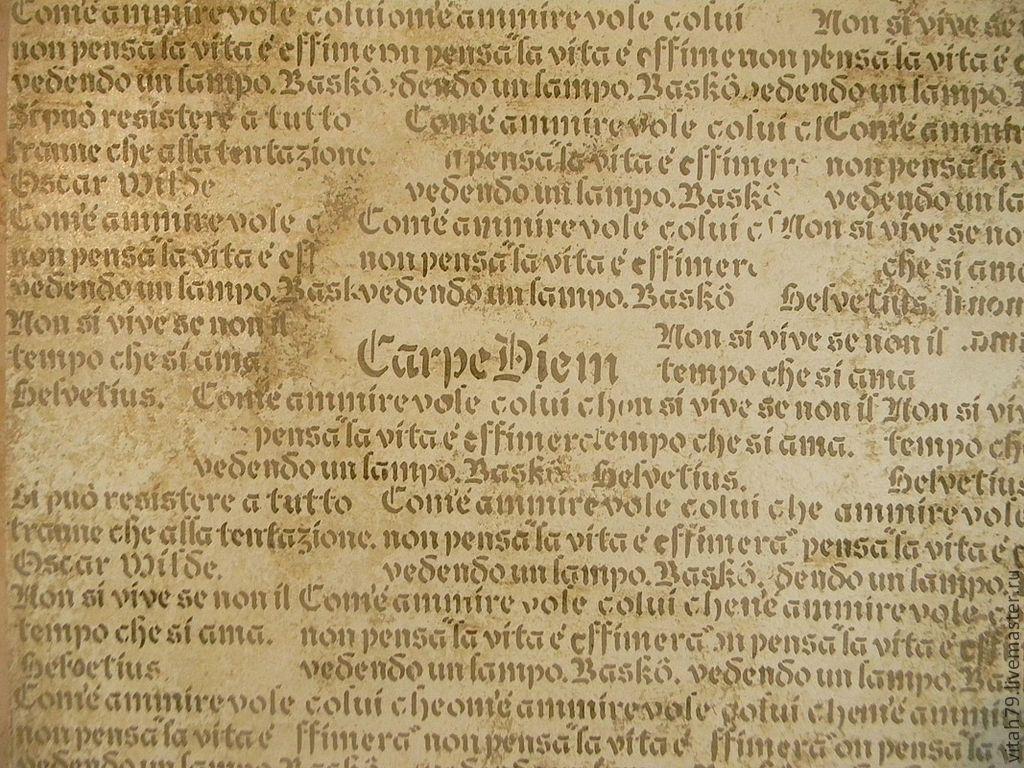 Com'é ammirevole colui om'é ammirevole colui Non si vive se
non pensa "la vita é effime non pensa "la vita é effime non pensa "la vita é
vedendo un lampo. Baskô. dendo un lampo. Baskô. vedendo un lampo.
Si può resistere a tutto Com'é ammirevole colui c Com'é ammir
tranne che alla tentazione. n pensa "la vita é effimer non pensa "la v
Oscar Wilde vedendo un lampo. Baskô vedendo un la
Com'é ammirevole c Com'é ammirevole colui c Non si vive se no
non pensa "la vita é eff non pensa "la vita é effimer che si ama
vedendo un lampo. Bask vedendo un lampo. Baskô Helvetius.
Non si vive se non il Non si vive se non il
tempo che si ama. Carpe Diem tempo che si ama
Helvetius. Com'é ammirevole colui ch on si vive se non il Non si viv
pensa "la vita é effimera tempo che si ama. tempo ch
vedendo un lampo. Baskô Helvetius. Helvetius
Si può resistere a tutto Com'é ammirevole colui che ammirevole
tranne che alla tentazione. non pensa "la vita é effimera" pensa "la vita é e
Oscar Wilde. vedendo un lampo. Baskô. dendo un lampo.
Non si vive se non il Com'é ammirevole colui che m'é ammirevole c
tempo che si ama. non pensa "la vita é effimera" on pensa "la vita é eff
Helvetius vedendo un lampo. Baskô. vedendo un lampo. Ba
Com'é ammirevole colui che om'é ammirevole colui che m'é ammi
non pensa "la vita é ffimera" non pensa "la vita é ffimera" on pensa "la v
vedendo un lampo. Baskô. vedendo un lampo. Baskô.
vitah79.livemaster.ru